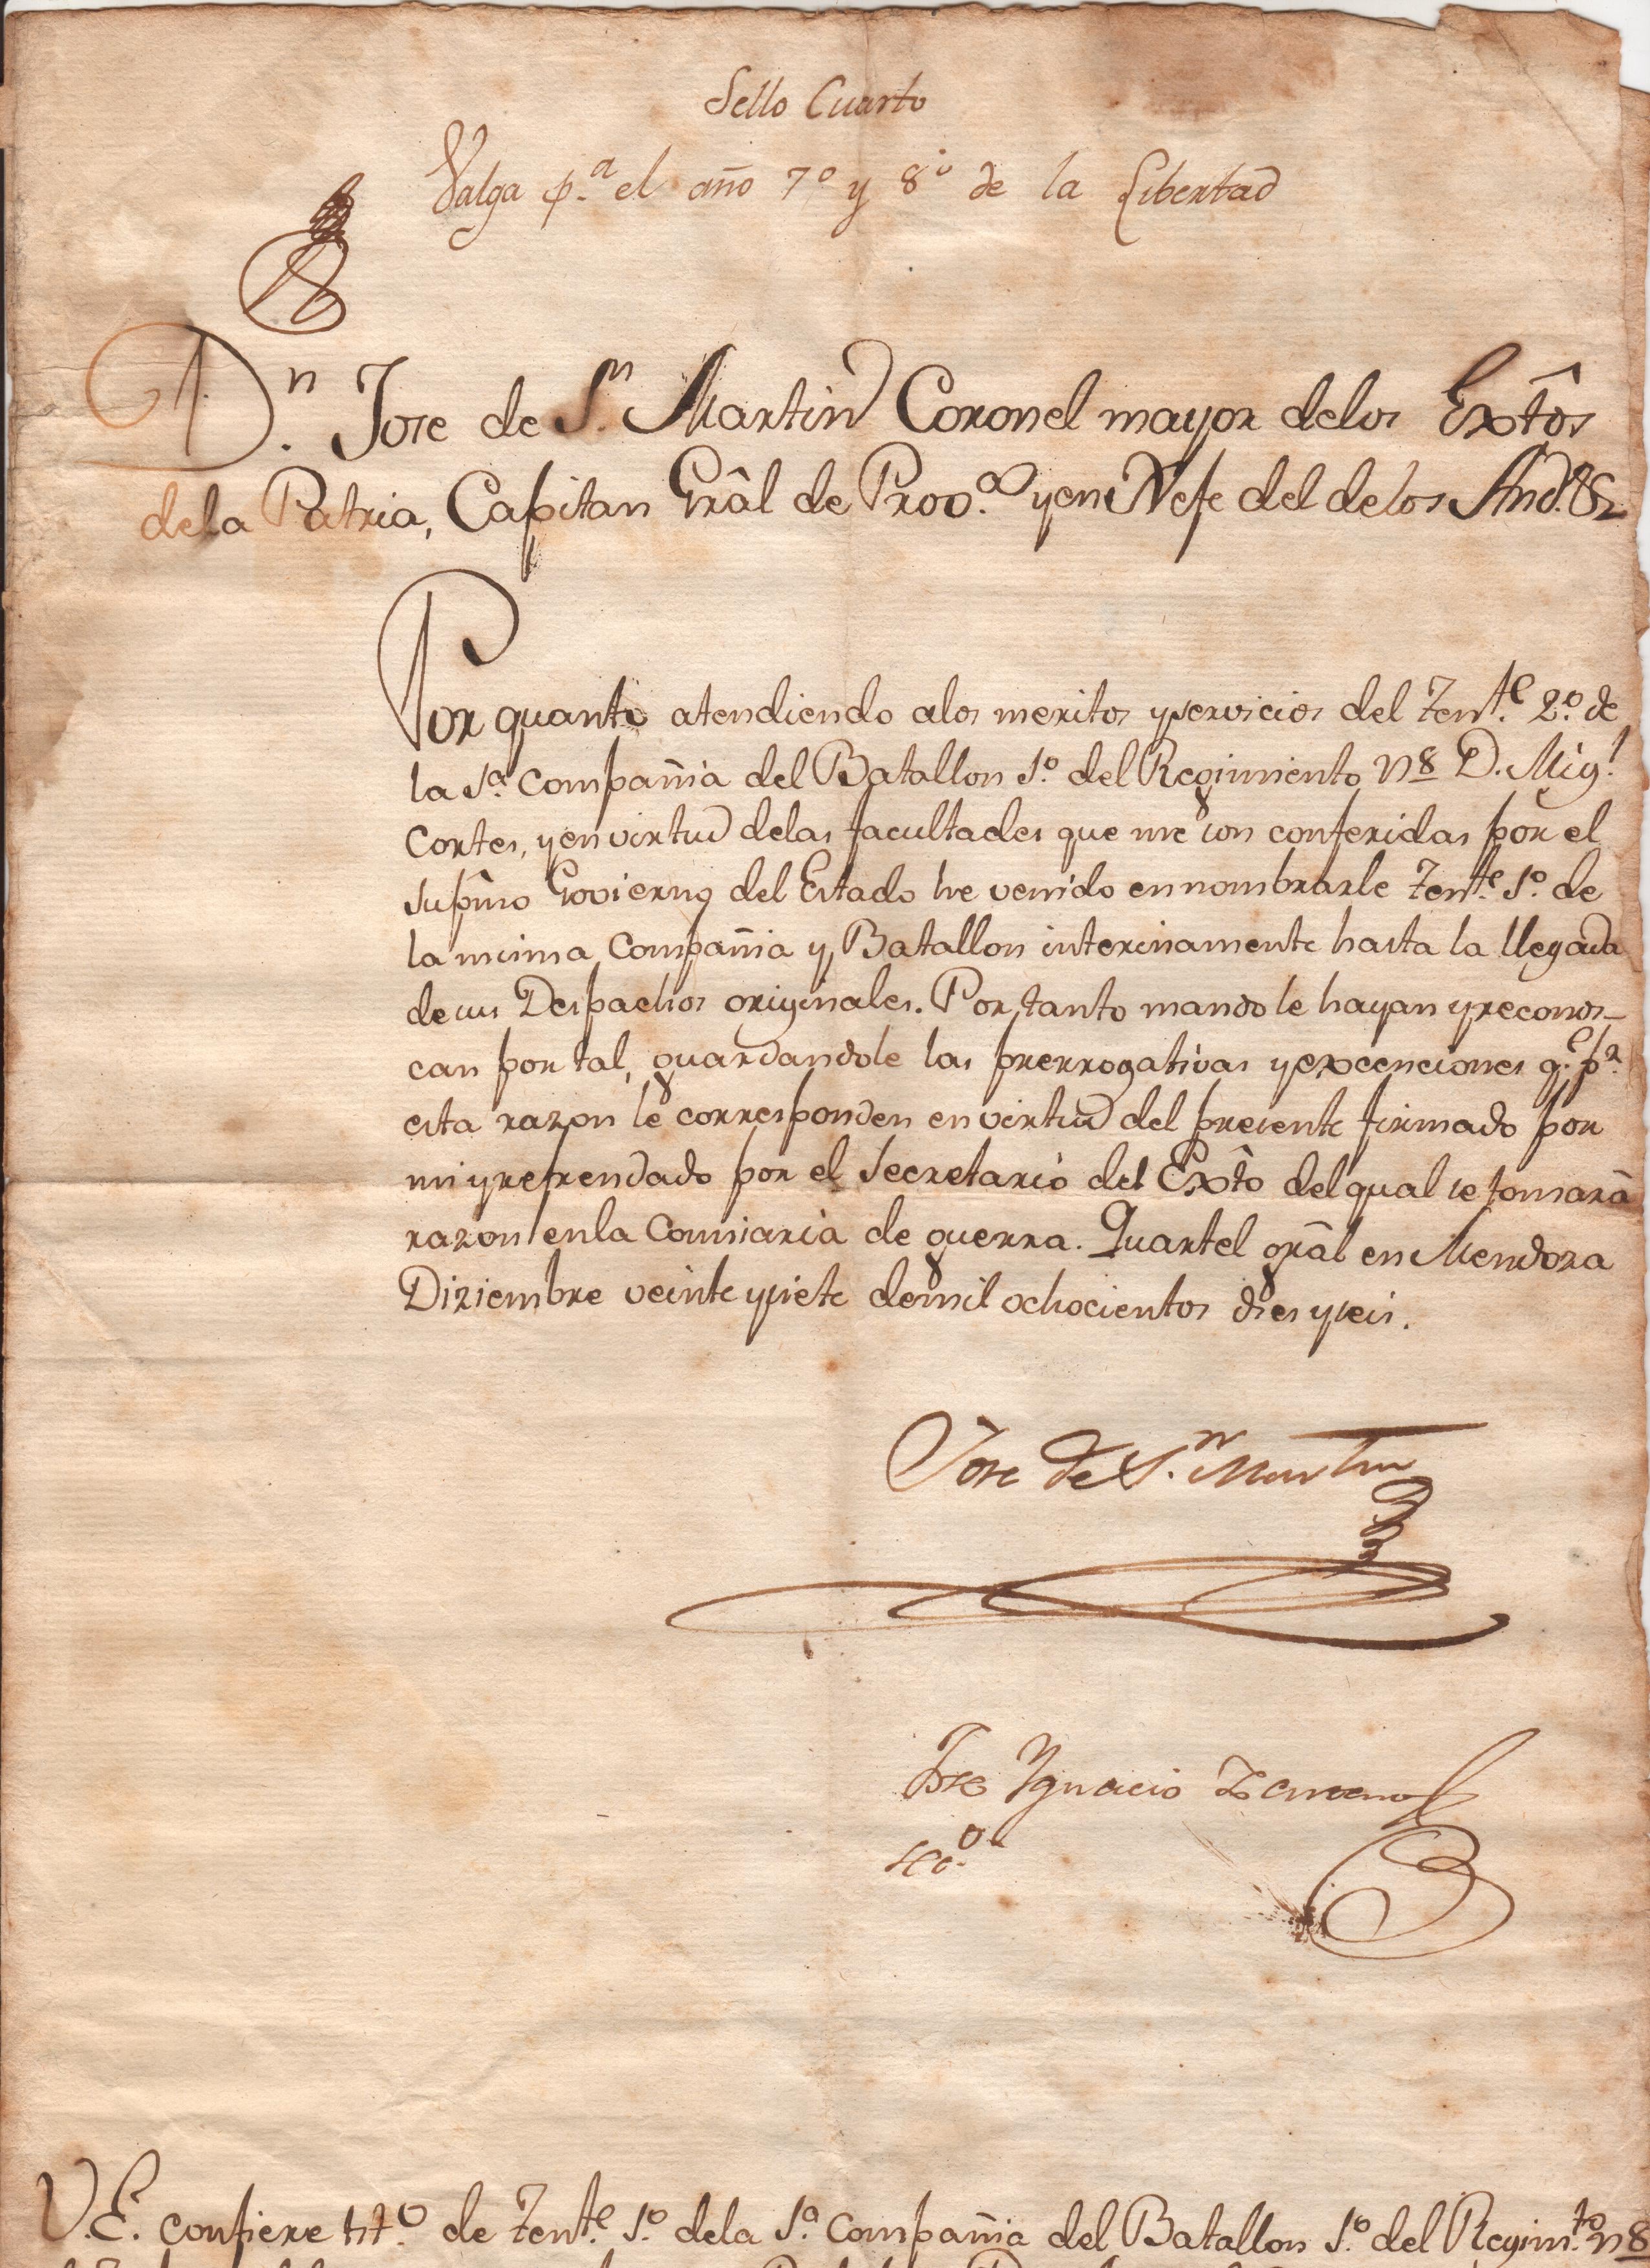 Sello Cuarto
Valga p.ª el año 7º y 8º de la Libertad
D.n Jose de S.n Martin Coronel mayor delos Extôs
dela Patria, Capitan Grâl de Prov.ª y en Xefe del delos And.s &
Por quanto atendiendo alos meritos y servicios del Ten.te 2.º de
la 1.ª Compañia del Batallon 1.º del Regimiento N 8 D. Mig.l
Cortes, y en virtud delas facultades que me son conferidas por el
Supm̂o Govierno del Estado he venido en nombrarle Ten.te 1.º de
la misma Compañia y Batallon interinamente hasta la llegada
de sus Despachos originales. Por tanto mando le hayan y reconos-
can por tal, guardandole las prerrogativas y excenciones q.e p.r
esta razon le corresponden en virtud del presente firmado por
mi y refrendado por el Secretario del Extô del qual se tomarà
razon en la Comisaria de guerra. Quartel grâl en Mendoza
Diziembre veinte y siete de mil ochocientos dies y seis.
Jose de S.n Martin
Jose Ygnacio Zenteno
sec.º
V.E. confiere tit.º de Ten.te 1.º dela 1.ª Compañia del Batallon 1.º del Regim.to N 8